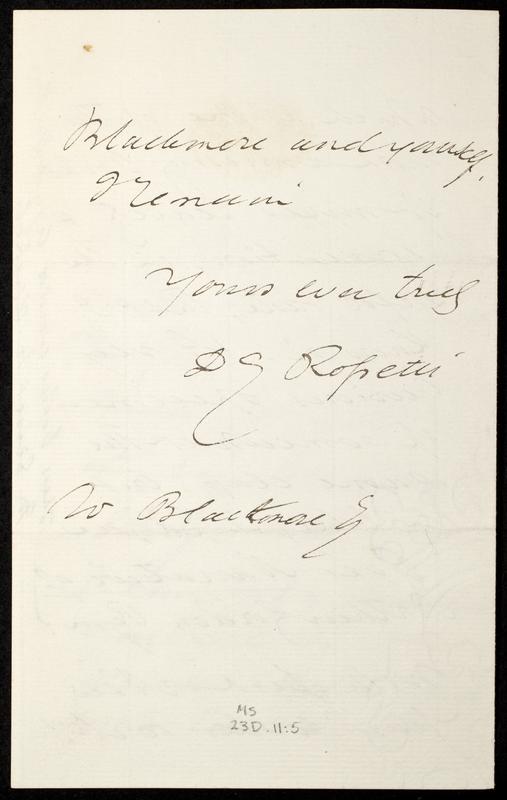 Blackmore and yourself,
I remain
Yours ever truly
D G Rossetti
W Blackmore Esq
MS
23D.11:5